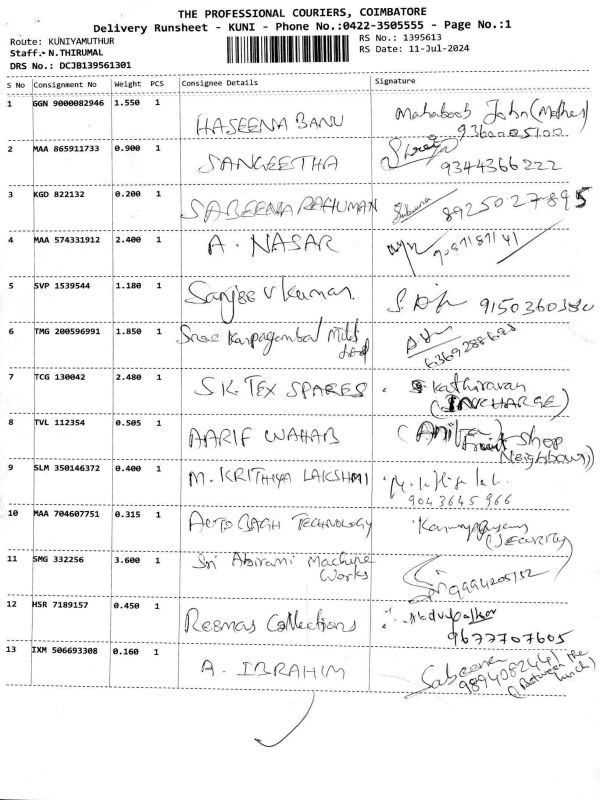 THE PROFESSIONAL COURIERS, COIMBATORE
Delivery Runsheet - KUNI - Phone No.:0422-3505555 - Page No.:1
Route: KUNIYAMUTHUR
RS No.: 1395613
Staff.- N.THIRUMAL
RS Date: 11-Jul-2024
DRS No.: DCJB139561301
S No Consignment No Weight PCS Consignee Details Signature
1 GGN 9000082946 1.550 1 HASEENA BANU Mahaboob John (Mother)
2 MAA 865911733 0.900 1 SANGEETHA
9344366222
3 KGD 822132 0.200 1 SABEENA RAHUMAN Sabeena 8925027895
4 MAA 574331912 2.400 1 A. NASAR
5 SVP 1539544 1.180 1 Sanjee v Kumar.
6 TMG 200596991 1.850 1 Sree Karpagambal Mills
Ltd
6369288628
7 TCG 130042 2.480 1 S.K. TEX SPARES Kathiravan
(INCHARGE)
8 TVL 112354 0.505 1 AARIF WAHAB (Anitha Front-shop
Neighbour)
9 SLM 350146372 0.400 1 M. KRITHIYA LAKSHMI
9043645966
10 MAA 704607751 0.315 1 AUTO BAGH TECHNOLOGY
(SECURITY)
11 SMG 332256 3.600 1 Sri Abirami Machine
Works
9994205152
12 HSR 7189157 0.450 1 Resmas Collections
9677707605
13 IXM 506693308 0.160 1 A. IBRAHIM Sabeena
9894082441
(Between the
lunch)